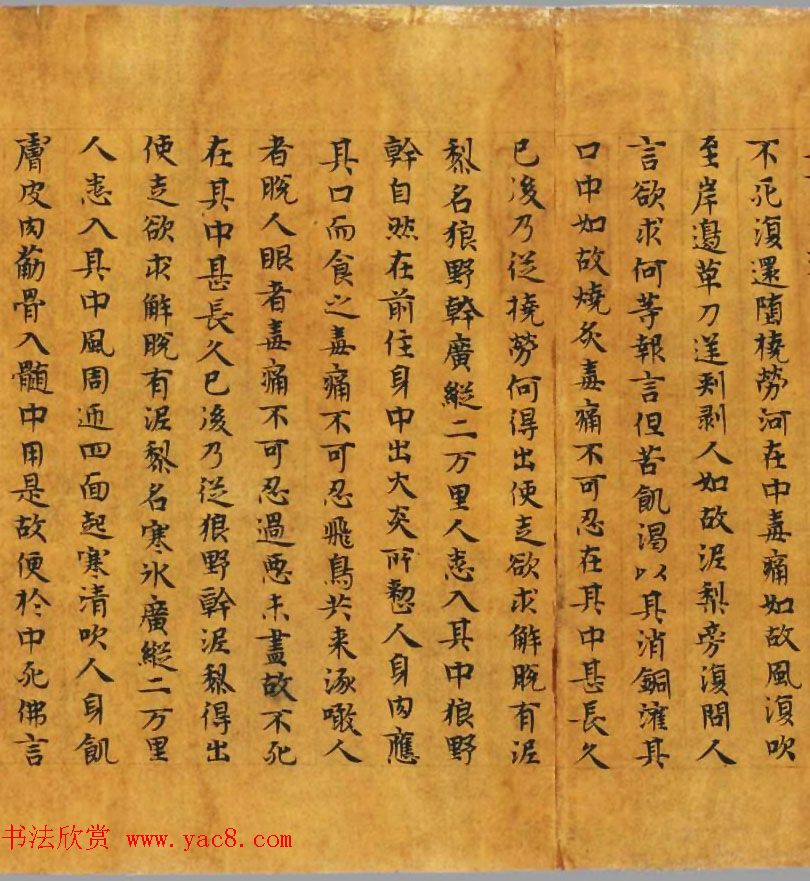 不死復還隨橈勞河在中毒痛如故風復吹
至岸邊草刀逆刺剥人如故泥梨旁復問人
言欲求何等報言但苦飢渴以其消銅灌其
口中如故燒炙毒痛不可忍在其中甚長久
已後乃従橈勞何得出便走欲求解脫有泥
黎名狼野幹廣縱二万里人悉入其中狼野
幹自然在前住身中出火炎所翫人身肉應
其口而食之毒痛不可忍飛鳥共来啄噉人
者脫人眼者毒痛不可忍過悪未盡故不死
在其中甚長久已後乃従狼野幹泥黎得出
便走欲求解脫有泥黎名寒氷廣縱二万里
人悉入其中風周迊四面起寒清吹人身飢
膚皮肉觔骨入髓中用是故便於中死佛言
书法欣赏 www.yac8.com